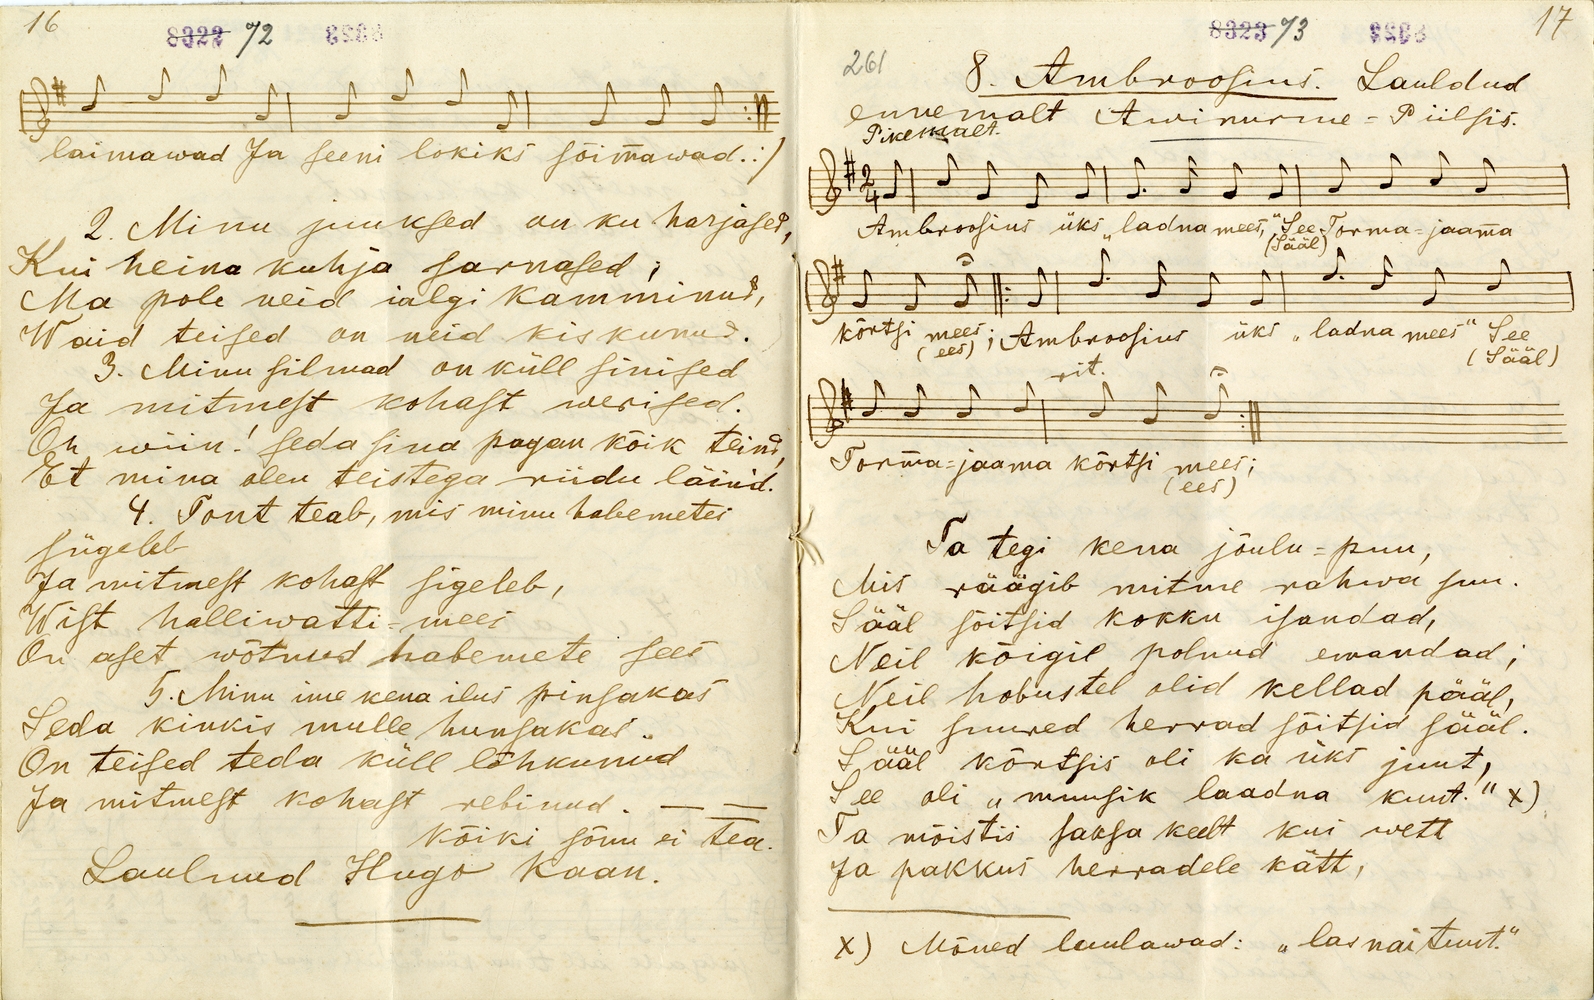 16
8322 72
laimawad Ja seeni lokiks sõim̄awad. :)
2. Minu juuksed on ku harjased,
Kui heina kuhja sarnased;
Ma pole neid ialgi kamminud,
Waid teised on neid kiskunud.
3. Minu silmad on küll sinised
Ja mitmest kohast werised.
Oh wiin! seda sina pagan kõik teind,
Et mina olen teistega riidu läind.
4. Tont teab, mis minu habemetes
sügeleb
Ja mitmest kohast sigeleb,
Wist halliwatti-mees
On aset wõtnud habemete sees
5. Minu ime kena ilus pinsakas
Seda kinkis mulle hunsakas.
On teised teda küll lõhkunud
Ja mitmest kohast rebinud. — —
Kõiki sõnu ei tea.
Laulnud Hugo Kaan.
17
8323 73
261
8. Ambroosius. Lauldud
ennemalt Awinurme-Piilsis.
Pikemalt.
2/4
Ambroosius üks „ladna mees," See Torma-jaam̄a
(Sääl)
kõrtsi mees; Ambroosius üks „ladna mees" See
(ees) (Sääl)
rit.
Torm̄a-jaama kõrtsi mees;
(ees)
Ta tegi kena jõulu-puu,
Mis räägib mitme rahwa suu.
Sääl sõitsid kokku isandad,
Neil kõigil polnud emandad;
Neil hobustel olid kellad pääl,
Kui suured herrad sõitsid sääl.
Sääl kõrtsis oli ka üks juut,
See oli „muusik laadna kuut." x)
Ta mõistis saksa keelt kui wett
Ja pakkus herradele kätt,
x) Mõned laulawad: „las nai tuut."